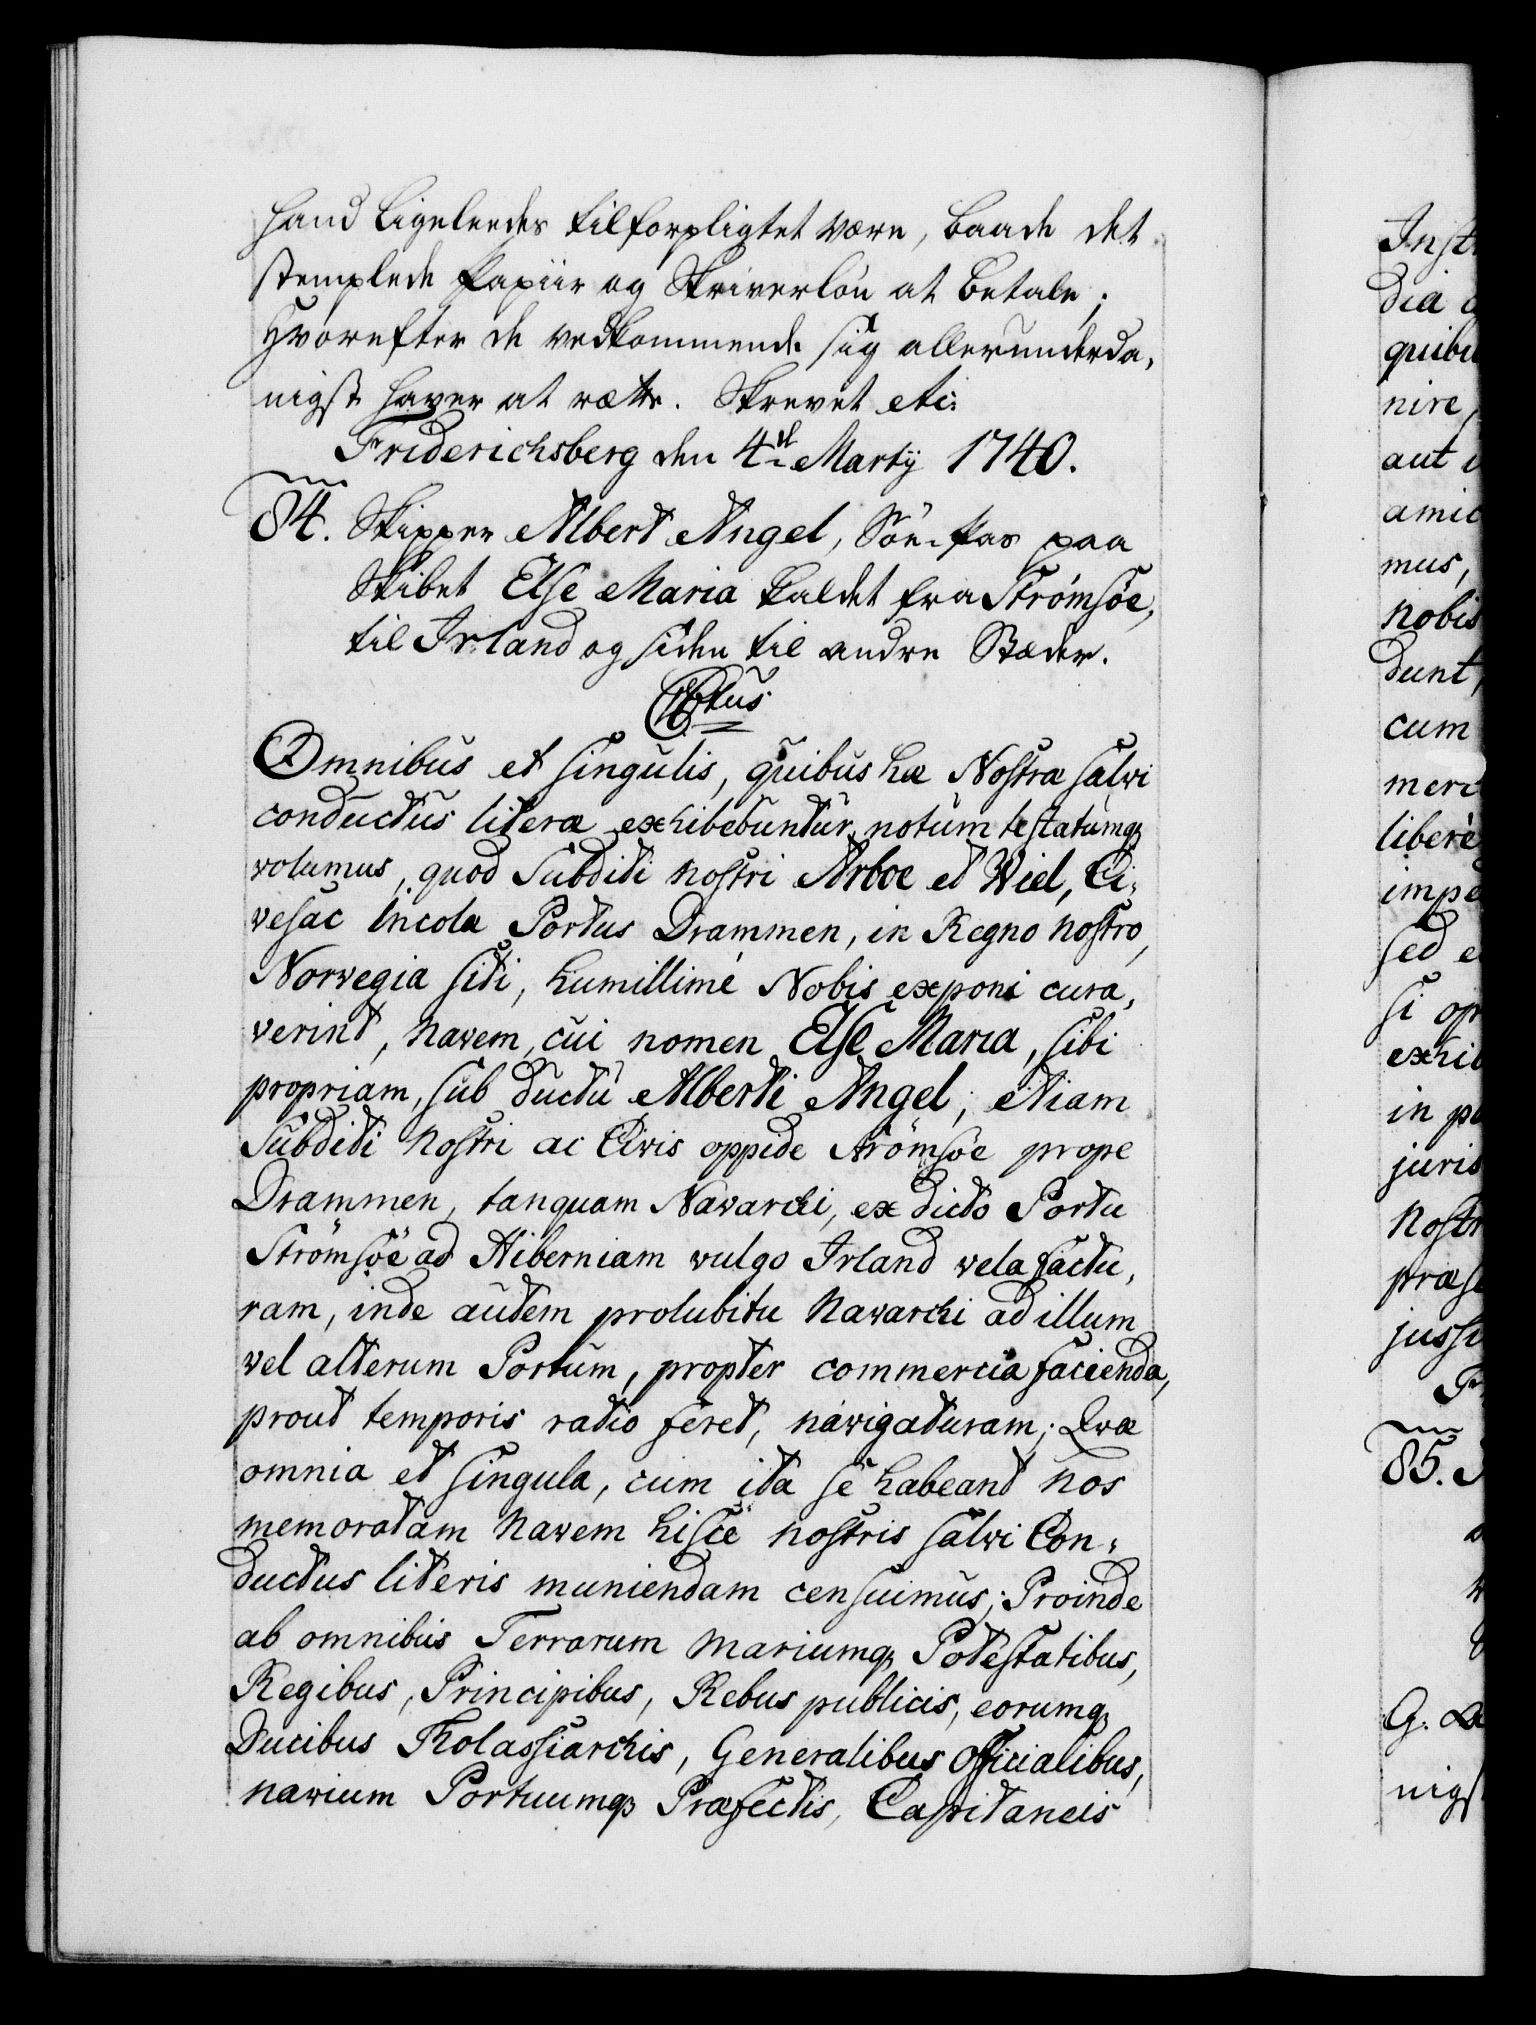 hand ligeledes tilforpligtet være, baade det
stemplede Papiir og Skriverløn at betale;
Hvorefter de vedkommende sig allerunderda,
nigst haver at rætte. Skrevet etc:
Friderichsberg den 4de Martij 1740.
84. Skipper Albert Angel, Søe-Pas paa
Skibet Else Maria kaldet fra Strømsöe,
til Irland og siden til andre Stæder.
C6tus
Omnibus et singulis, quibus hæ Nostræ salvi
conductus literæ exhibebuntur, notum testatumq;
volumus, quod Subditi nostri Arboe et Wiel, Ci,
vesac incolæ Portus Drammen, in Regno nostro,
Norvegia siti, humillimè Nobis exponi cura,
verint, navem, cui nomen Else Maria, sibi
propriam, sub ductu Alberti Angel, etiam
Subditi nostri ac Civis oppide Strömsöe prope
Drammen, tanquam Navarchi, ex dicto Portu
Strömsöe ad Hiberniam vulgo Irland vela factu,
ram, inde autem prolubitu Navarchi ad illum
vel alterum Portum, propter commercia facienda,
prout temporis ratio feret, navigaturam; Qvæ
omnia et singula, cum ita se habeant nos
memoratam navem hisce nostris salvi Con,
ductus literis muniendam censuimus; Proinde
ab omnibus Terrarum mariumq; Potestatibus,
Regibus, Principibus, Rebus publicis, eorumq;
Ducibus Tholassiarchis, Generalibus Officialibus,
navium Portuumq; Præfectis, Capitaneis
Inst
dia
quibu
nire,
aut
amic
mus,
nobis
dunt,
cum
merc
liberè
impe
sed e
si op
exhib
in p
juris
nostr
præs
jussi
Fr
85.
G.
nigs